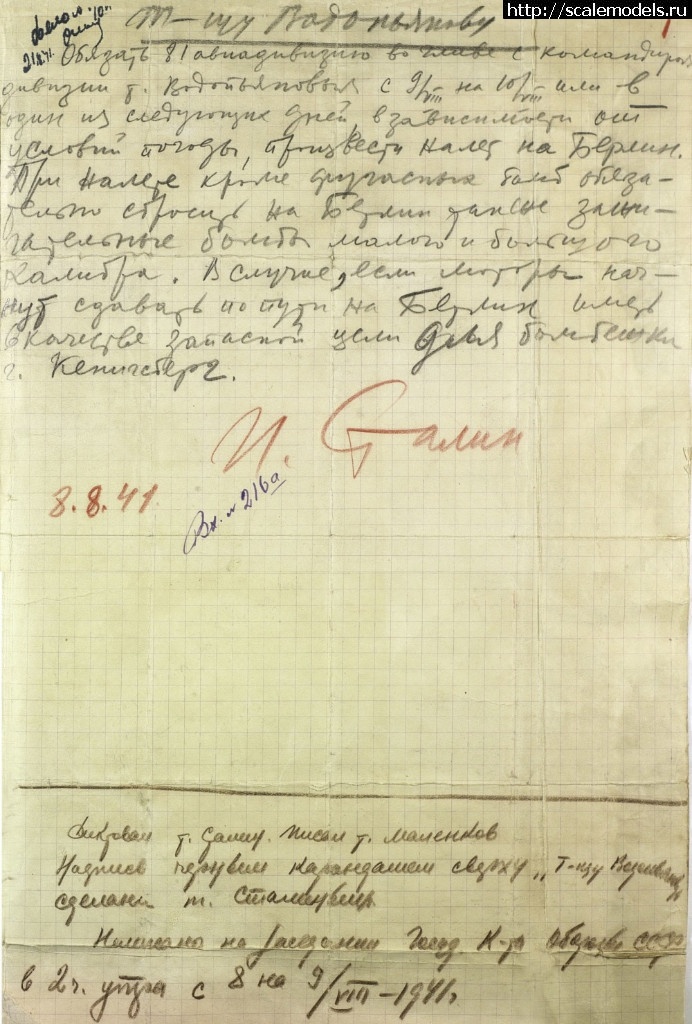 http://scalemodels.ru
1
Т-щу Водопьянову
Обязать 81 авиадивизию во главе с командиром
дивизии т. Водопьяновым с 9/VIII на 10/VIII или в
один из следующих дней, в зависимости от
условий погоды, произвести налет на Берлин.
При налете кроме фугасных бомб обяза-
тельно сбросить на Берлин также зажи-
гательные бомбы малого и большого
калибра. В случае, если моторы нач-
нут сдавать по пути на Берлин иметь
в качестве запасной цели для бомбежки
г. Кенигсберг.
И. Сталин
8.8.41
Вх. № 216а
Диктовал т. Сталин. Писал т. Маленков
Надпись черным карандашем сверху „Т-щу Водопьянову"
сделана т. Сталиным
Написано на заседании Госуд. К-та Обороны СССР
в 2 ч. утра с 8 на 9/VIII–1941г.